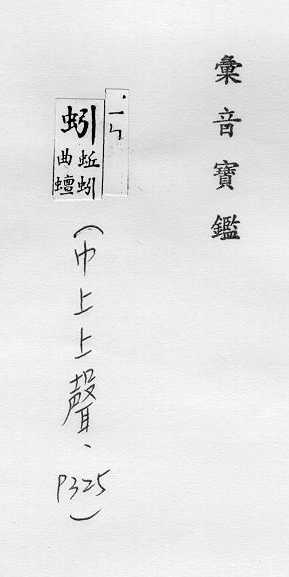 彙音寶鑑
˙ㄧㄣ
蚓
蚯蚓
曲蟺
(巾上上聲、P325)